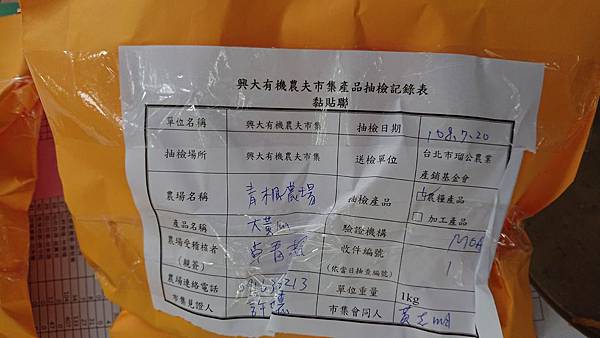 興大有機農夫市集產品抽檢記錄表
黏貼聯
單位名稱 興大有機農夫市集 抽檢日期 108.7.20
抽檢場所 興大有機農夫市集 送檢單位 台北市瑠公農業
產銷基金會
農場名稱 青楓農場 抽檢產品 農糧產品
加工產品
產品名稱 大黃瓜 驗證機構 MOA
農場受稽核者
(親簽)
收件編號 1
(依當日抽查編號)
農場連絡電話 單位重量 1kg
市集見證人 市集會同人